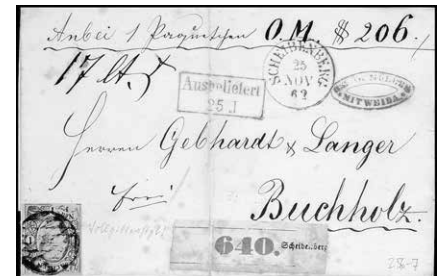 Anbei 1 Paquetchen O. M. $ 206.
17 lt.
Ausgeliefert
25 I
SCHEIBENBERG
25
NOV
62
MITWEIDA
Herren Gebhardt & Langer
frei
Buchholz.
640. Scheibenberg
28-7